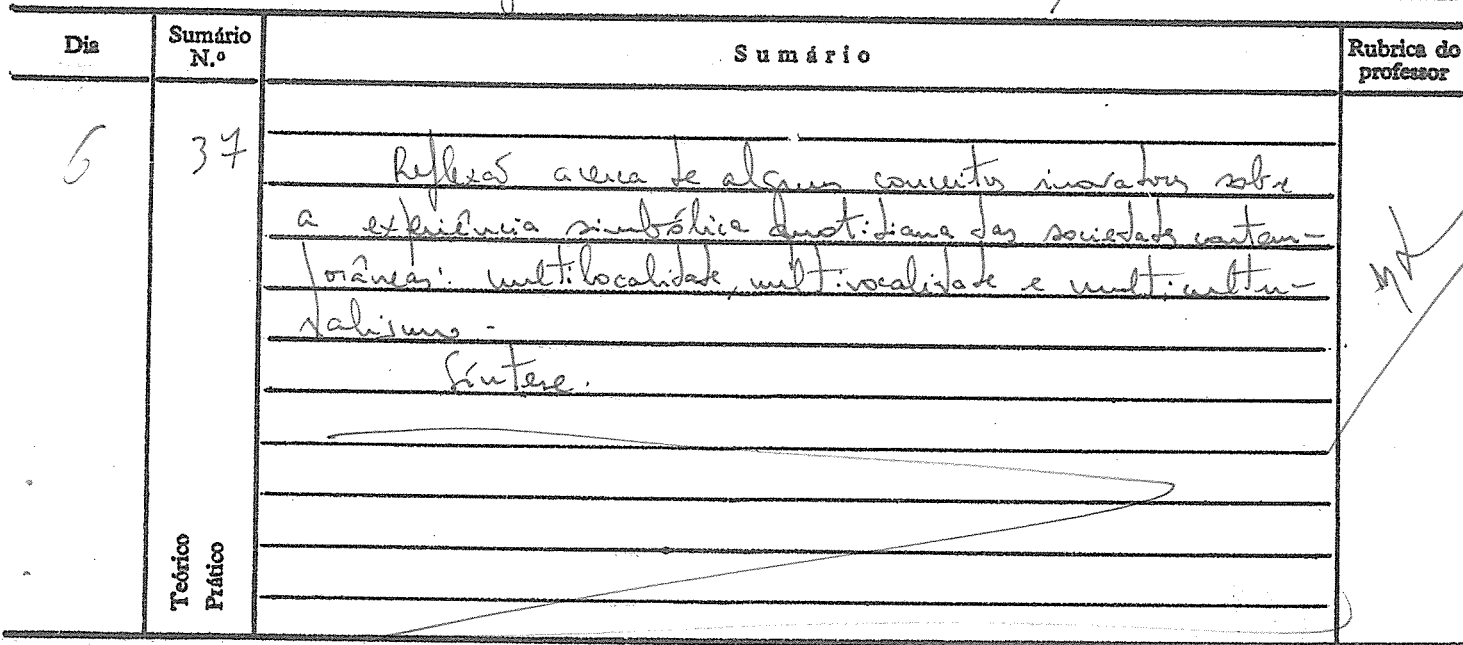 Dia
Sumário N.º
Sumário
Rubrica do professor
6
37
Reflexão acerca de alguns conceitos inovadores sobre
a experiência simbólica quotidiana das sociedades contem-
porâneas: multilocalidade, multivocalidade e multicultu-
ralismo.
Síntese.
Teórico
Prático